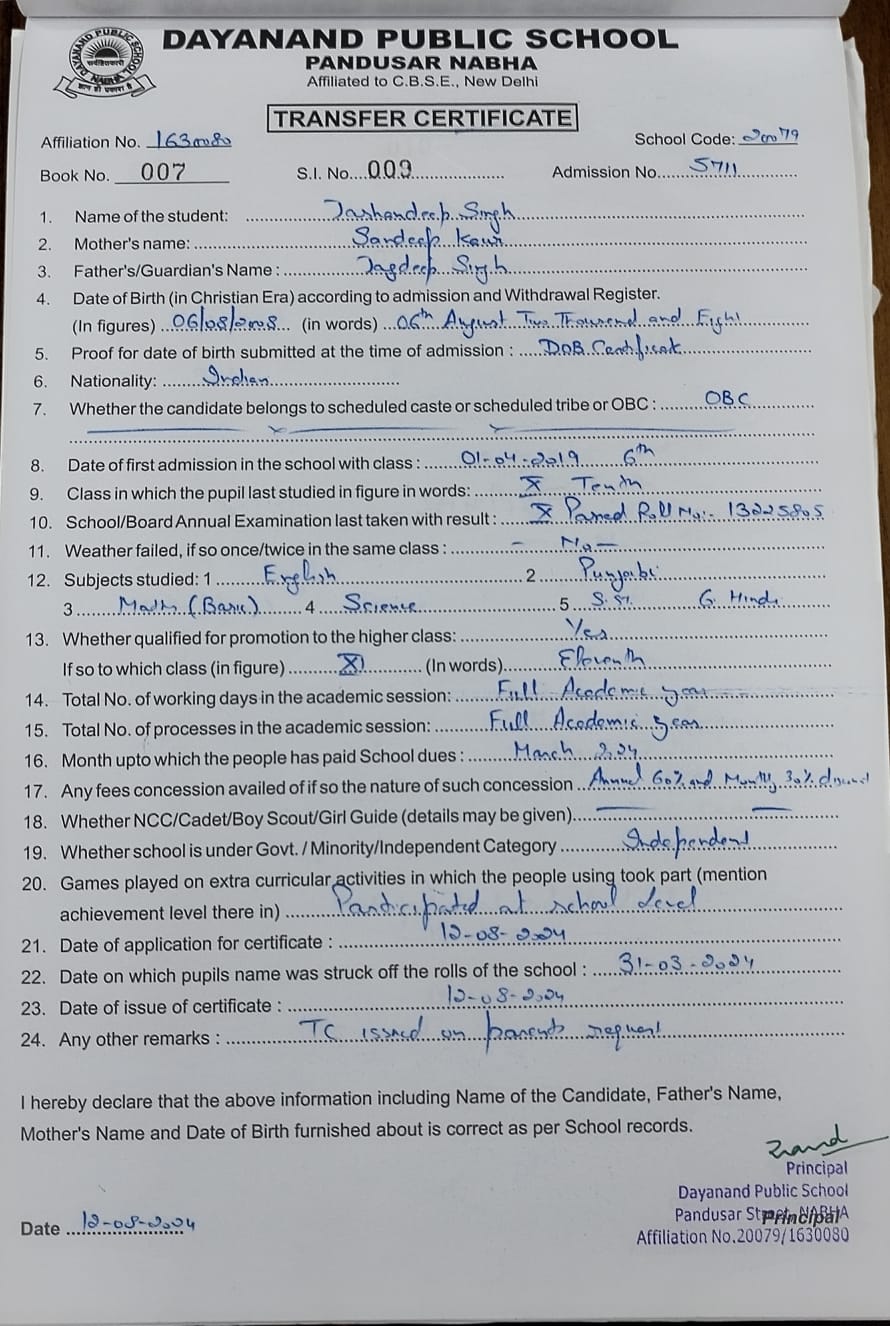 DAYANAND PUBLIC SCHOOL
PANDUSAR NABHA
Affiliated to C.B.S.E., New Delhi
TRANSFER CERTIFICATE
Affiliation No. 1630080 School Code: 20079
Book No. 007 S.I. No. 009 Admission No. 5711
1. Name of the student: Jashandeep Singh
2. Mother's name: Sandeep Kaur
3. Father's/Guardian's Name : Jagdeep Singh
4. Date of Birth (in Christian Era) according to admission and Withdrawal Register.
(In figures) 06/08/2008 (in words) 06th August Two Thousand and Eight
5. Proof for date of birth submitted at the time of admission : DOB Certificate
6. Nationality: Indian
7. Whether the candidate belongs to scheduled caste or scheduled tribe or OBC : OBC
8. Date of first admission in the school with class : 01-04-2019 6th
9. Class in which the pupil last studied in figure in words: X Tenth
10. School/Board Annual Examination last taken with result : X Passed Roll No:- 13225805
11. Weather failed, if so once/twice in the same class : - No -
12. Subjects studied: 1 English 2 Punjabi
3 Math (Basic) 4 Science 5 S.St. 6. Hindi
13. Whether qualified for promotion to the higher class: Yes
If so to which class (in figure) XI (In words) Eleventh
14. Total No. of working days in the academic session: Full Academic year
15. Total No. of processes in the academic session: Full Academic year
16. Month upto which the people has paid School dues : March 2024
17. Any fees concession availed of if so the nature of such concession Annual 60% and Monthly 30%
18. Whether NCC/Cadet/Boy Scout/Girl Guide (details may be given)
19. Whether school is under Govt. / Minority/Independent Category Independent
20. Games played on extra curricular activities in which the people using took part (mention
achievement level there in) Participated at school level
21. Date of application for certificate : 12-08-2024
22. Date on which pupils name was struck off the rolls of the school : 31-03-2024
23. Date of issue of certificate : 12-08-2024
24. Any other remarks : TC issued on parents request
I hereby declare that the above information including Name of the Candidate, Father's Name,
Mother's Name and Date of Birth furnished about is correct as per School records.
Principal
Dayanand Public School
Pandusar NABHA
Principal
Affiliation No.20079/1630080
Date 12-08-2024